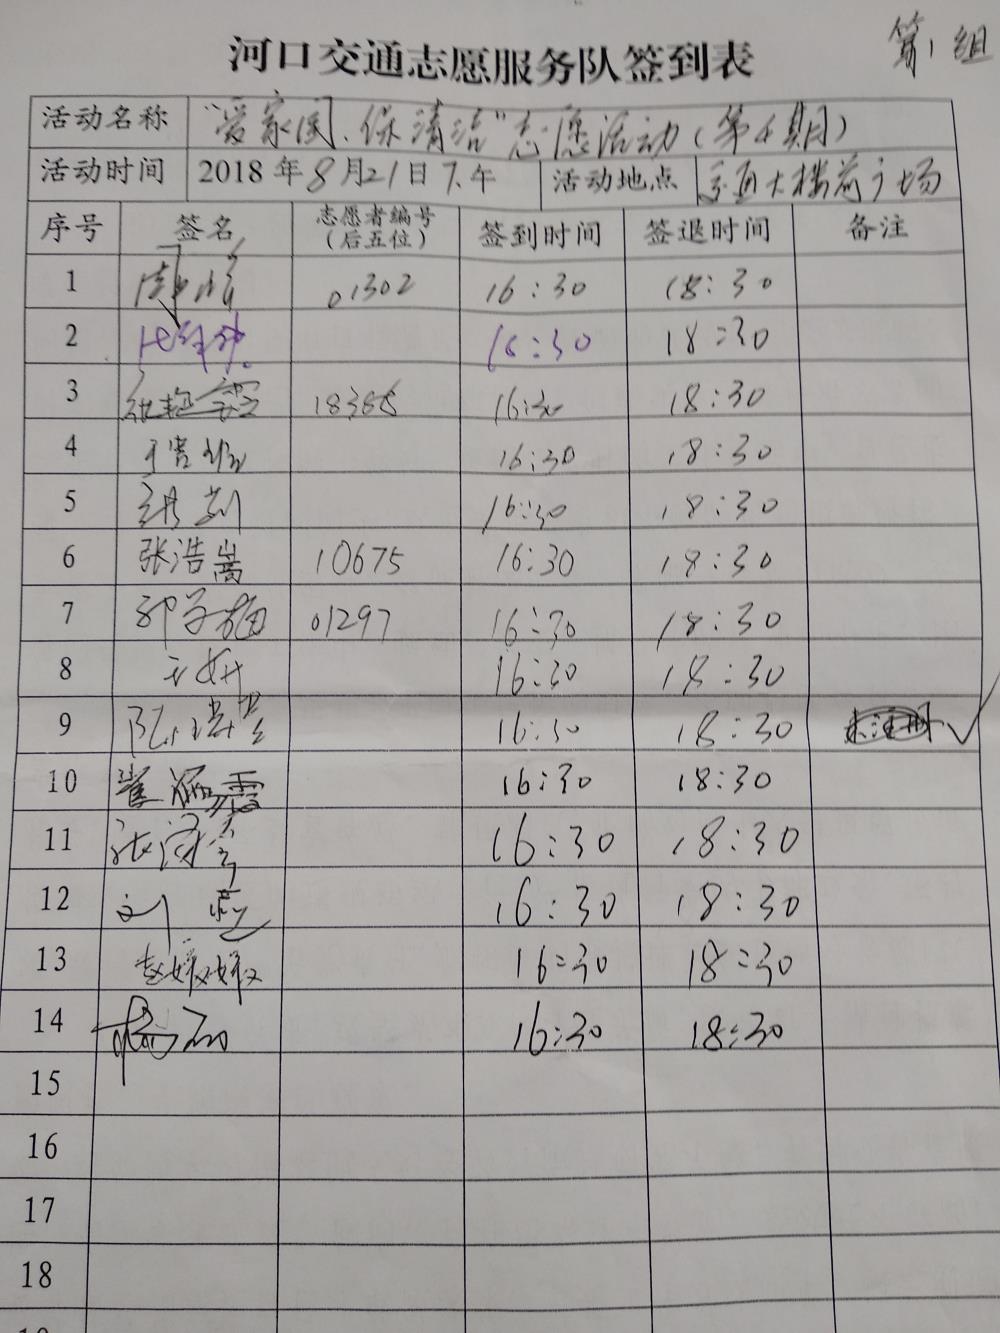 第1组
河口交通志愿服务队签到表
活动名称 "爱家园、保清洁"志愿活动(第4期)
活动时间 2018年8月21日下午 活动地点 交通大楼前广场
序号 签名 志愿者编号(后五位) 签到时间 签退时间 备注
1 01302 16:30 18:30
2 16:30 18:30
3 18388 16:30 18:30
4 16:30 18:30
5 16:30 18:30
6 张浩嵩 10675 16:30 18:30
7 01297 16:30 18:30
8 王妍 16:30 18:30
9 16:30 18:30 未注册 ✓
10 崔涵霞 16:30 18:30
11 16:30 18:30
12 16:30 18:30
13 赵媛媛 16:30 18:30
14 16:30 18:30
15
16
17
18